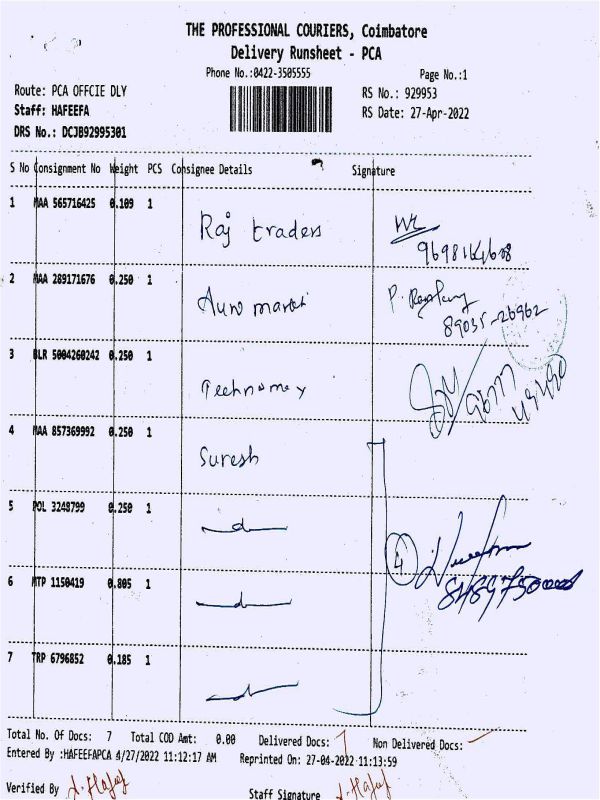 THE PROFESSIONAL COURIERS, Coimbatore
Delivery Runsheet - PCA
Phone No.:0422-3505555 Page No.:1
Route: PCA OFFCIE DLY RS No.: 929953
Staff: HAFEEFA RS Date: 27-Apr-2022
DRS No.: DCJB92995301
S No Consignment No Weight PCS Consignee Details Signature
1 MAA 565716425 0.109 1 Raj traders
2 MAA 289171676 0.250 1 Auro
89035-26962
3 BLR 5004260242 0.250 1
4 MAA 857369992 0.250 1 Suresh
5 POL 3248799 0.250 1
4
6 MTP 1150419 0.805 1
7 TRP 6796852 0.185 1
Total No. Of Docs: 7 Total COD Amt: 0.00 Delivered Docs: 7 Non Delivered Docs:
Entered By :HAFEEFAPCA 4/27/2022 11:12:17 AM Reprinted On: 27-04-2022 11:13:59
Verified By Staff Signature